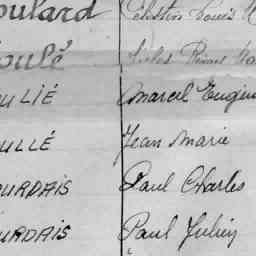 oulard Célestin Louis
oulé Jules
ULIÉ Marcel Eugèn
ULLÉ Jean Marie
OURDAIS Paul Charles
URDAIS Paul Julien